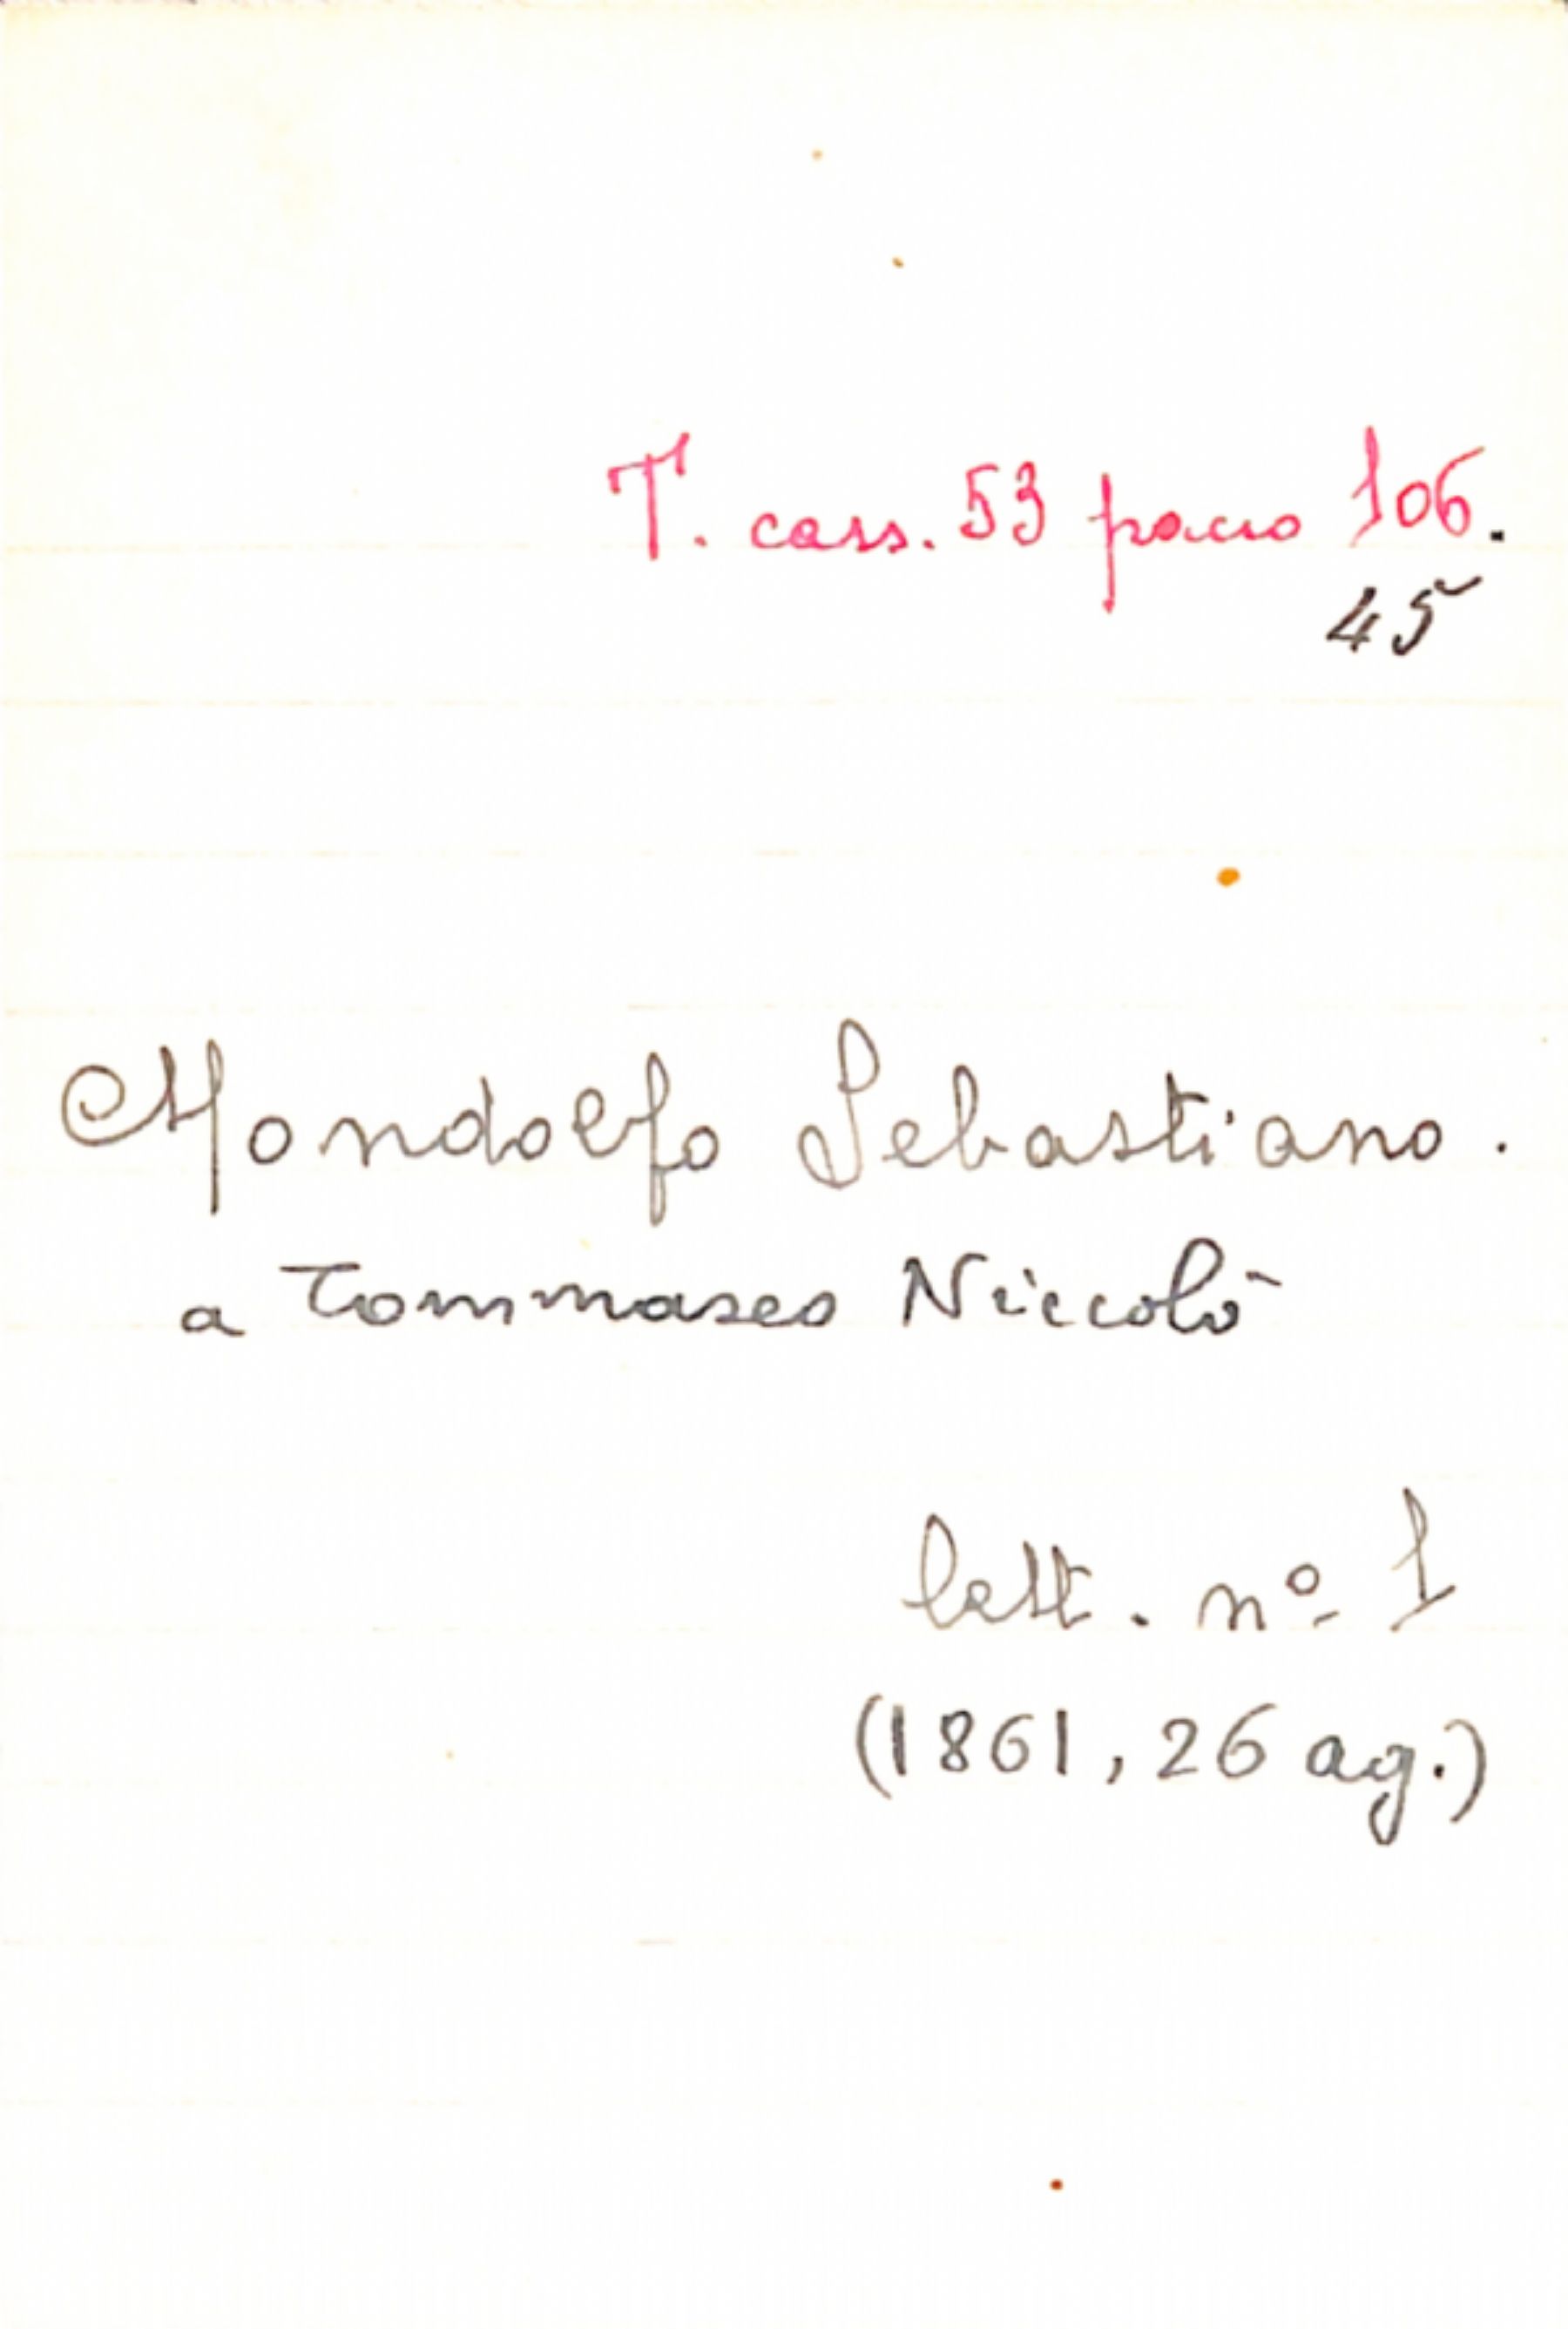 T. cass. 53 pacco 106.
45
Mondolfo Sebastiano.
a Tommaseo Niccolò
lett. nº 1
(1861, 26 ag.)